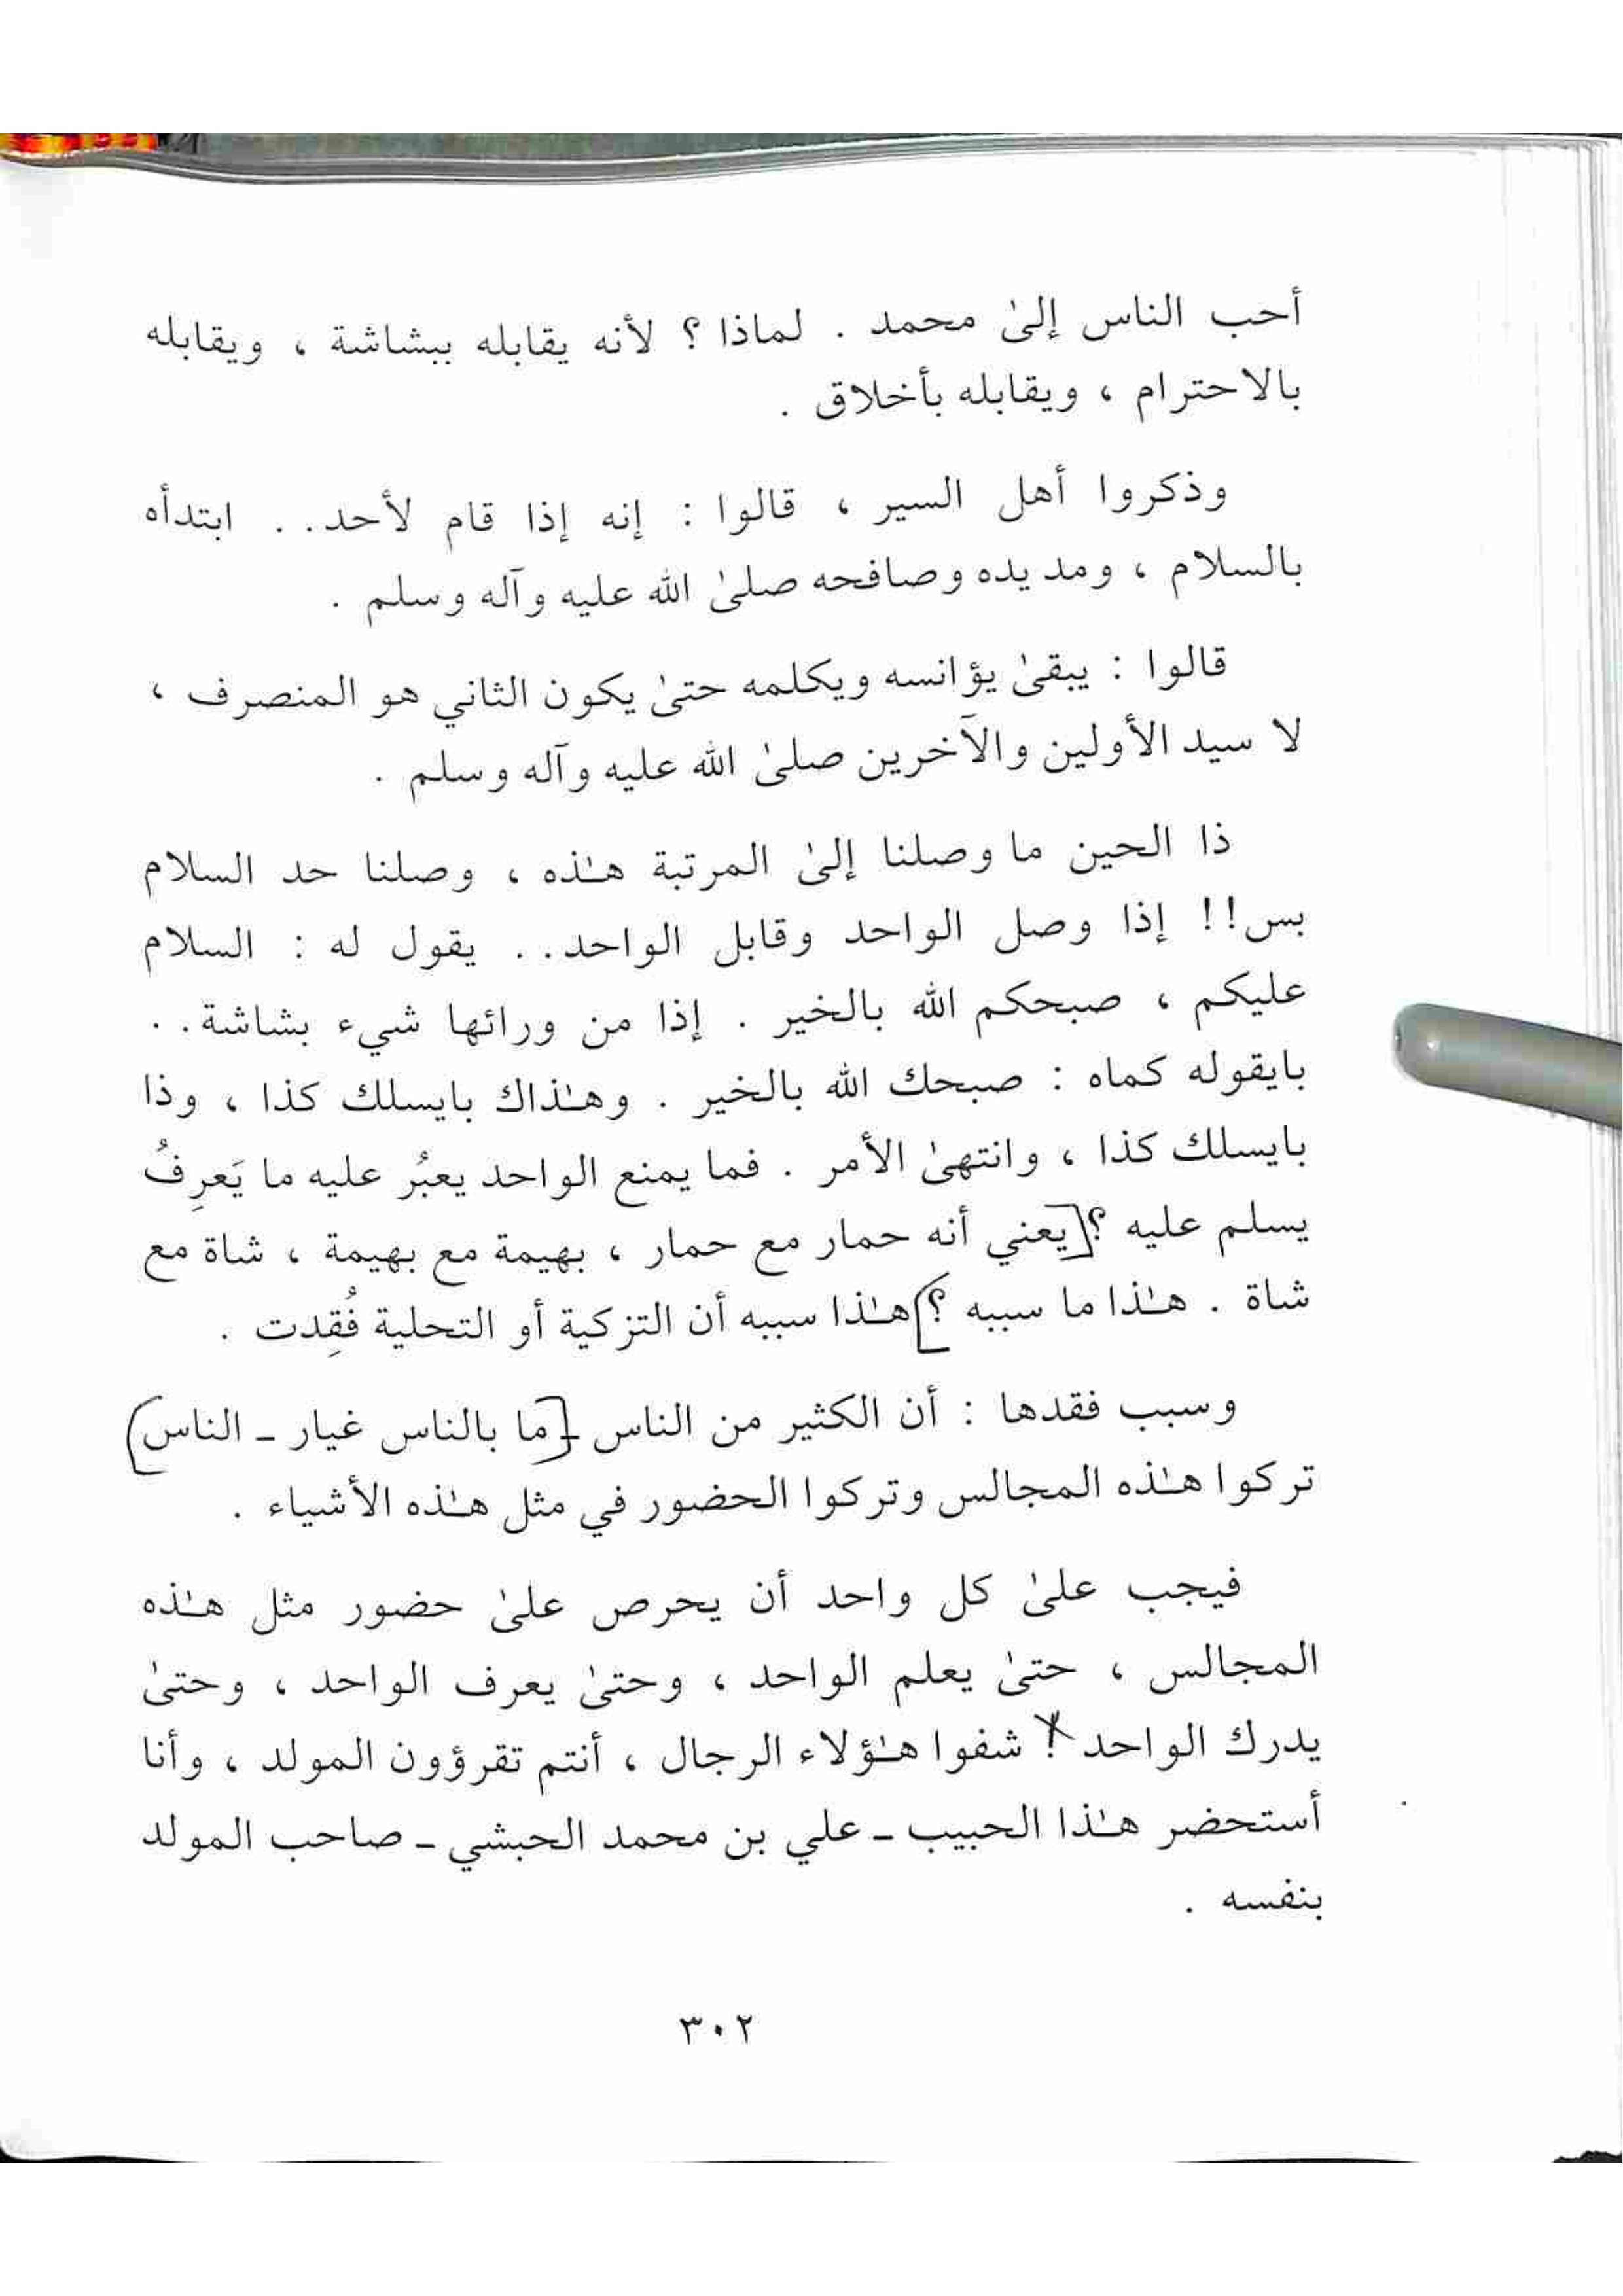 أحب الناس إلىٰ محمد . لماذا ؟ لأنه يقابله ببشاشة ، ويقابله
بالاحترام ، ويقابله بأخلاق .
وذكروا أهل السير ، قالوا : إنه إذا قام لأحد . . ابتدأه
بالسلام ، ومد يده وصافحه صلىٰ الله عليه وآله وسلم .
قالوا : يبقىٰ يؤانسه ويكلمه حتىٰ يكون الثاني هو المنصرف ،
لا سيد الأولين والآخرين صلىٰ الله عليه وآله وسلم .
ذا الحين ما وصلنا إلىٰ المرتبة هـٰذه ، وصلنا حد السلام
بس !! إذا وصل الواحد وقابل الواحد . . يقول له : السلام
عليكم ، صبحكم الله بالخير . إذا من ورائها شيء بشاشة . .
بايقوله كماه : صبحك الله بالخير . وهـٰذاك بايسلك كذا ، وذا
بايسلك كذا ، وانتهىٰ الأمر . فما يمنع الواحد يعبُر عليه ما يَعرِفُ
يسلم عليه ؟ [يعني أنه حمار مع حمار ، بهيمة مع بهيمة ، شاة مع
شاة . هـٰذا ما سببه ؟] هـٰذا سببه أن التزكية أو التحلية فُقِدت .
وسبب فقدها : أن الكثير من الناس ـ [ما بالناس غيار ـ الناس]
تركوا هـٰذه المجالس وتركوا الحضور في مثل هـٰذه الأشياء .
فيجب علىٰ كل واحد أن يحرص علىٰ حضور مثل هـٰذه
المجالس ، حتىٰ يعلم الواحد ، وحتىٰ يعرف الواحد ، وحتىٰ
يدرك الواحد ! شفوا هـٰؤلاء الرجال ، أنتم تقرؤون المولد ، وأنا
أستحضر هـٰذا الحبيب ـ علي بن محمد الحبشي ـ صاحب المولد
بنفسه .
٣٠٢